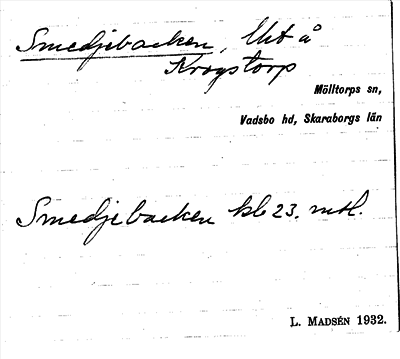 Smedjebacken, Utt å
Krogstorp
Mölltorps sn,
Vadsbo hd, Skaraborgs län
Smedjebacken kb 23. mtl.
L. MADSÉN 1932.